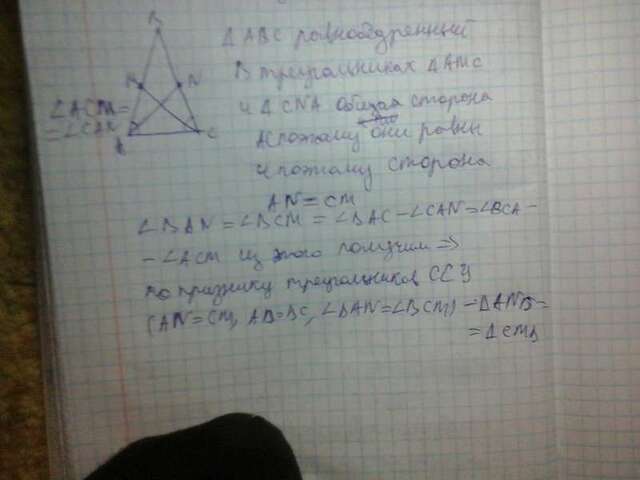 B
M N
∠ACM=
=∠CAN
A C
ΔABC равнобедренный
В треугольниках ΔAMC
и ΔCNA общая сторона
AC поэтому они равны
и поэтому сторона
AN=CM
∠BAN=∠BCM=∠BAC-∠CAN=∠BCA-
-∠ACM из этого получим =>
по признику треугольников ССУ
(AN=CM, AB=BC, ∠BAN=∠BCM) -ΔANB=
=ΔCMB